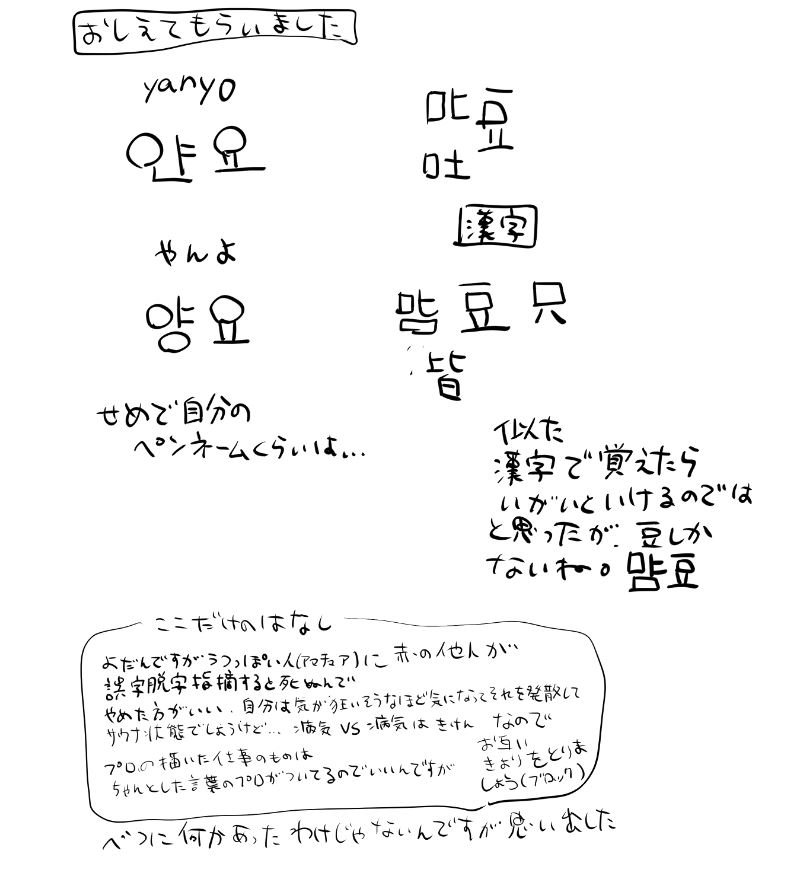 おしえてもらいました
yanyo
얀요
やんよ
양요
せめで自分の
ペンネームくらいは...
吐
漢字
맘豆 只
皆
似た
漢字で覚えたら
いがいといけるのでは
と思ったが、豆しか
ないね。맘豆
ここだけのはなし
よだんですがうつっぽい人(アマチュア)に 赤の他人が
誤字脱字指摘すると死ぬんで
やめた方がいい、自分は気が狂いそうなほど気になってそれを発散して
サウナ状態でしょうけど... 病気 VS 病気は きけん なので
お互い
きょりをとりま
しょう(ブロック)
プロの描いた仕事のものは
ちゃんとした言葉のプロがついてるのでいいんですが
べつに何かあったわけじゃないんですが思い出した